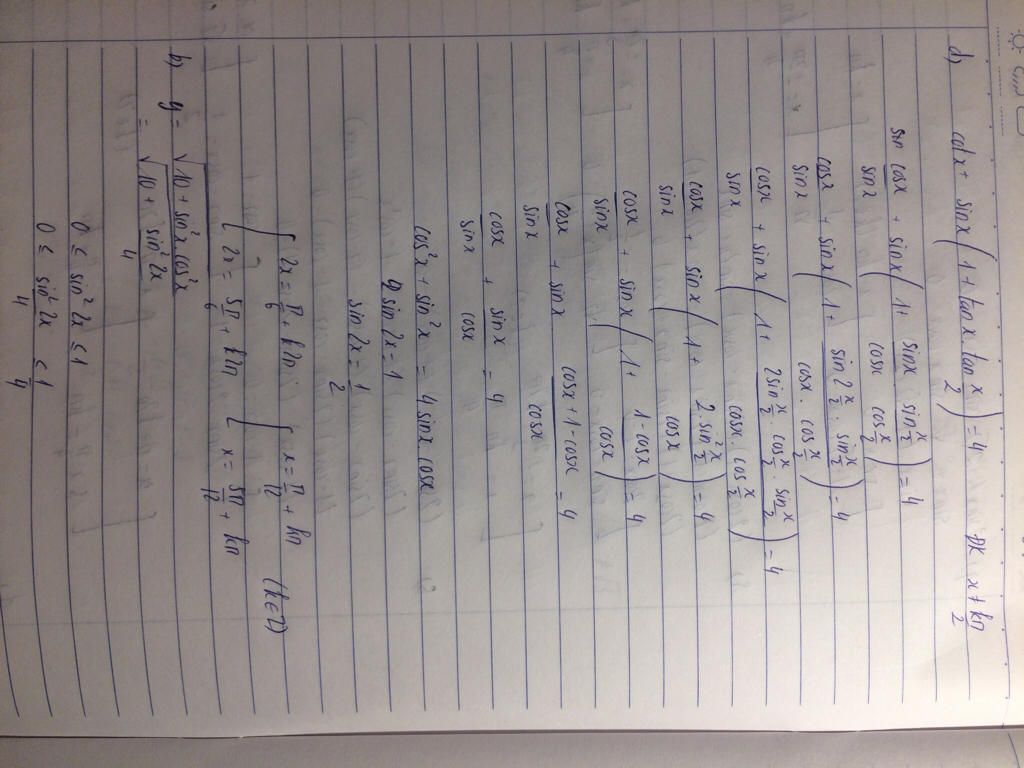 d) cotx + sinx ( 1 + tanx . tan x/2 ) = 4 ĐK x ≠ kπ/2
cosx/sinx + sinx ( 1 + sinx/cosx . sin x/2 / cos x/2 ) = 4
cosx/sinx + sinx ( 1 + sin 2 x/2 . sin x/2 / cosx . cos x/2 ) = 4
cosx/sinx + sinx ( 1 + 2 sin x/2 . cos x/2 . sin x/2 / cosx . cos x/2 ) = 4
cosx/sinx + sinx ( 1 + 2 . sin² x/2 / cosx ) = 4
cosx/sinx + sinx ( 1 + 1 - cosx / cosx ) = 4
cosx/sinx + sinx cosx + 1 - cosx / cosx = 4
cosx/sinx + sinx/cosx = 4
cos²x + sin²x = 4 sinx cosx
2 sin 2x = 1
sin 2x = 1/2
[ 2x = π/6 + k2π [ x = π/12 + kπ (k∈Z)
[ 2x = 5π/6 + k2π [ x = 5π/12 + kπ
b) y = √10 + sin²x cos²x
= √10 + sin²2x / 4
0 ≤ sin²2x ≤ 1
0 ≤ sin²2x / 4 ≤ 1/4